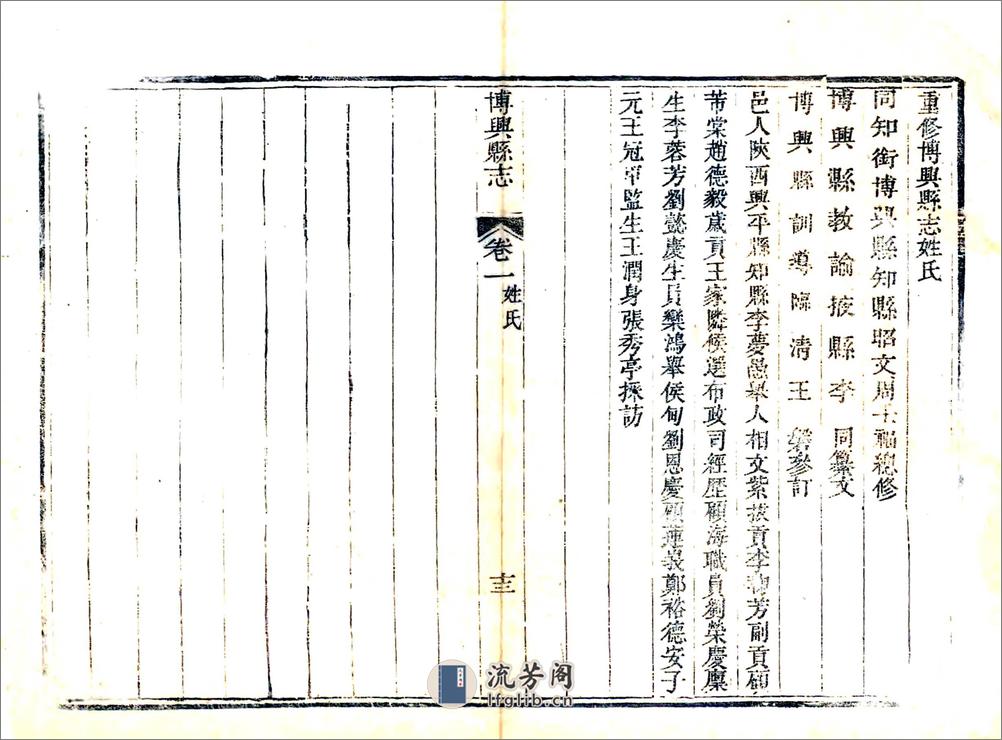 重修博興縣志姓氏
同知銜博興縣知縣昭文周壬福總修
博興縣教諭掖縣李同纂文
博興縣訓導臨清王參訂
邑人陝西興平縣知縣李夢愚舉人相文紫拔貢李芳副貢顧
芾棠趙德毅歲貢王家隣候選布政司經歷顧海職員劉榮慶廩
生李蓉芳劉懿慶生員欒鴻舉侯甸劉恩慶顧蓮義鄭裕德安子
元王冠軍監生王潤身張秀亭採訪
博興縣志
卷一
姓氏
十三
流芳阁
lfglib.cn